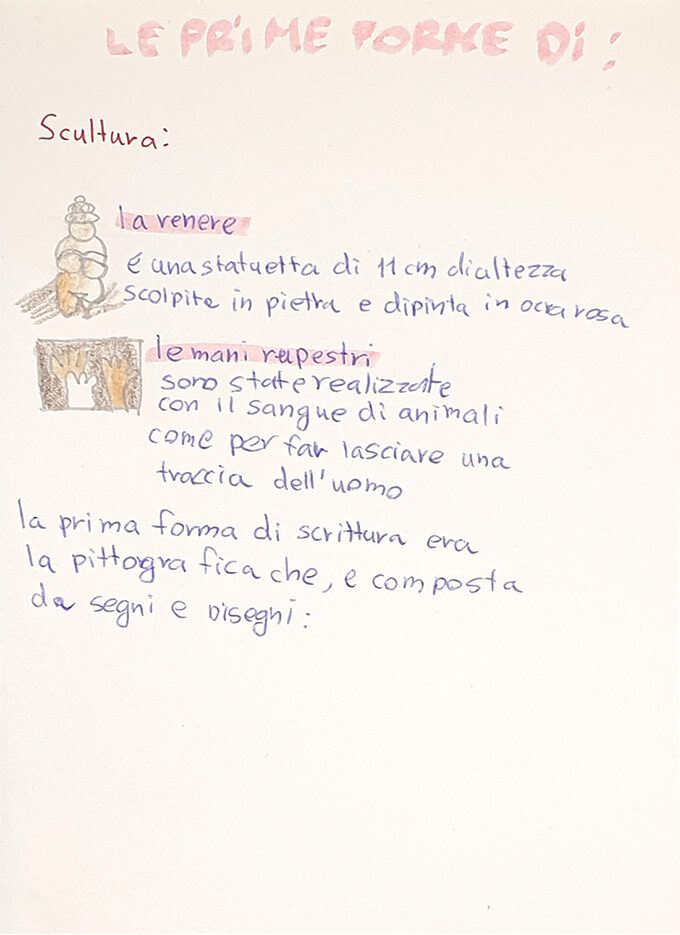 LE PRIME FORME DI :
Scultura:
la venere
é una statuetta di 11 cm di altezza
scolpite in pietra e dipinta in ocra rosa
le mani rupestri
sono state realizzate
con il sangue di animali
come per far lasciare una
traccia dell'uomo
la prima forma di scrittura era
la pittografica che, e composta
da segni e disegni: